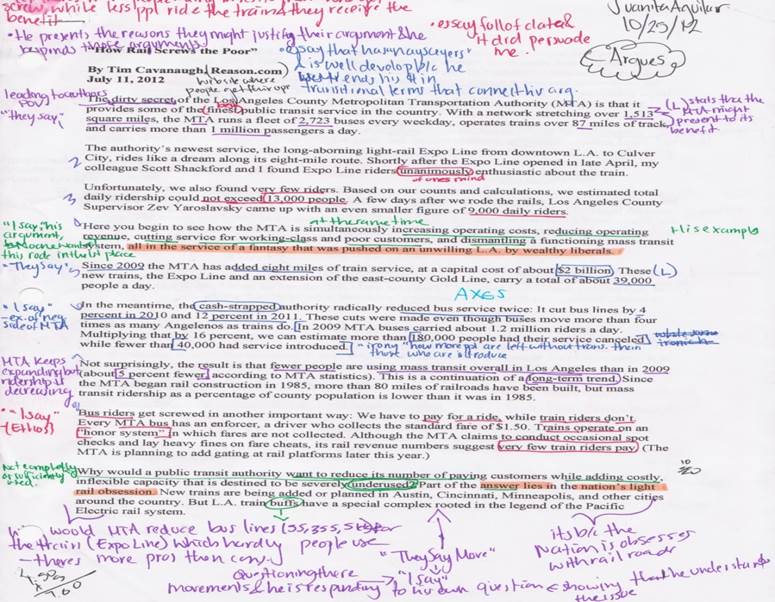 screw, while less ppl ride the trains they receive the
benefit
Juanita Aguilar
10/25/12
• essay full of data &
it did persuade
me.
Argues
• He presents the reasons they might justify their argument & he
responds those arguments
"How Rail Screws the Poor"
• essay that has naysayers
& is well develop b/c he
By Tim Cavanaugh/Reason.com)
July 11, 2012
transitional terms that connect his arg.
leading to authors
POV
"they say"
The dirty secret of the Los Angeles County Metropolitan Transportation Authority (MTA) is that it
provides some of the finest public transit service in the country. With a network stretching over 1,513
square miles, the MTA runs a fleet of 2,723 buses every weekday, operates trains over 87 miles of track,
and carries more than 1 million passengers a day.
(L) stats that the
MTA might
present to its
benefit
2
The authority's newest service, the long-aborning light-rail Expo Line from downtown L.A. to Culver
City, rides like a dream along its eight-mile route. Shortly after the Expo Line opened in late April, my
colleague Scott Shackford and I found Expo Line riders unanimously enthusiastic about the train.
of one mind
3
Unfortunately, we also found very few riders. Based on our counts and calculations, we estimated total
daily ridership could not exceed 13,000 people. A few days after we rode the rails, Los Angeles County
Supervisor Zev Yaroslavsky came up with an even smaller figure of 9,000 daily riders.
at the same time
"I say" his
argument,
this rode in the 1st place
Here you begin to see how the MTA is simultaneously increasing operating costs, reducing operating
revenue, cutting service for working-class and poor customers, and dismantling a functioning mass transit
system, all in the service of a fantasy that was pushed on an unwilling L.A. by wealthy liberals.
His example
"They Say"
Since 2009 the MTA has added eight miles of train service, at a capital cost of about $2 billion. These (L)
new trains, the Expo Line and an extension of the east-county Gold Line, carry a total of about 39,000
people a day.
AXES
• "I say"
- ex. of neg
side of MTA
In the meantime, the cash-strapped authority radically reduced bus service twice: It cut bus lines by 4
percent in 2010 and 12 percent in 2011. These cuts were made even though buses move more than four
times as many Angelenos as trains do. In 2009 MTA buses carried about 1.2 million riders a day.
Multiplying that by 16 percent, we can estimate more than 180,000 people had their service canceled
while fewer than 40,000 had service introduced.
"irony" how more ppl are left without trans. than
those who are introduce
MTA keeps
expanding but
ridership is
decreasing
Not surprisingly, the result is that fewer people are using mass transit overall in Los Angeles than in 2009
(about 5 percent fewer, according to MTA statistics). This is a continuation of a long-term trend. Since
the MTA began rail construction in 1985, more than 80 miles of railroads have been built, but mass
transit ridership as a percentage of county population is lower than it was in 1985.
• "I say"
(Ethos)
Bus riders get screwed in another important way: We have to pay for a ride, while train riders don't.
Every MTA bus has an enforcer, a driver who collects the standard fare of $1.50. Trains operate on an
"honor system" in which fares are not collected. Although the MTA claims to conduct occasional spot
checks and lay heavy fines on fare cheats, its rail revenue numbers suggest very few train riders pay. (The
MTA is planning to add gating at rail platforms later this year.)
Not completely
or sufficiently
used.
Why would a public transit authority want to reduce its number of paying customers while adding costly,
inflexible capacity that is destined to be severely underused? Part of the answer lies in the nation's light
rail obsession. New trains are being added or planned in Austin, Cincinnati, Minneapolis, and other cities
around the country. But L.A. train buffs have a special complex rooted in the legend of the Pacific
Electric rail system.
would MTA reduce bus lines
the trains (Expo Line) which hardly people use
- theres more pros then cons.
"They Say More"
its b/c the
Nation is obsesses
with rail roads
Questioning there
movements & he is responding to his own question & showing that he understands
"I say"
the issue